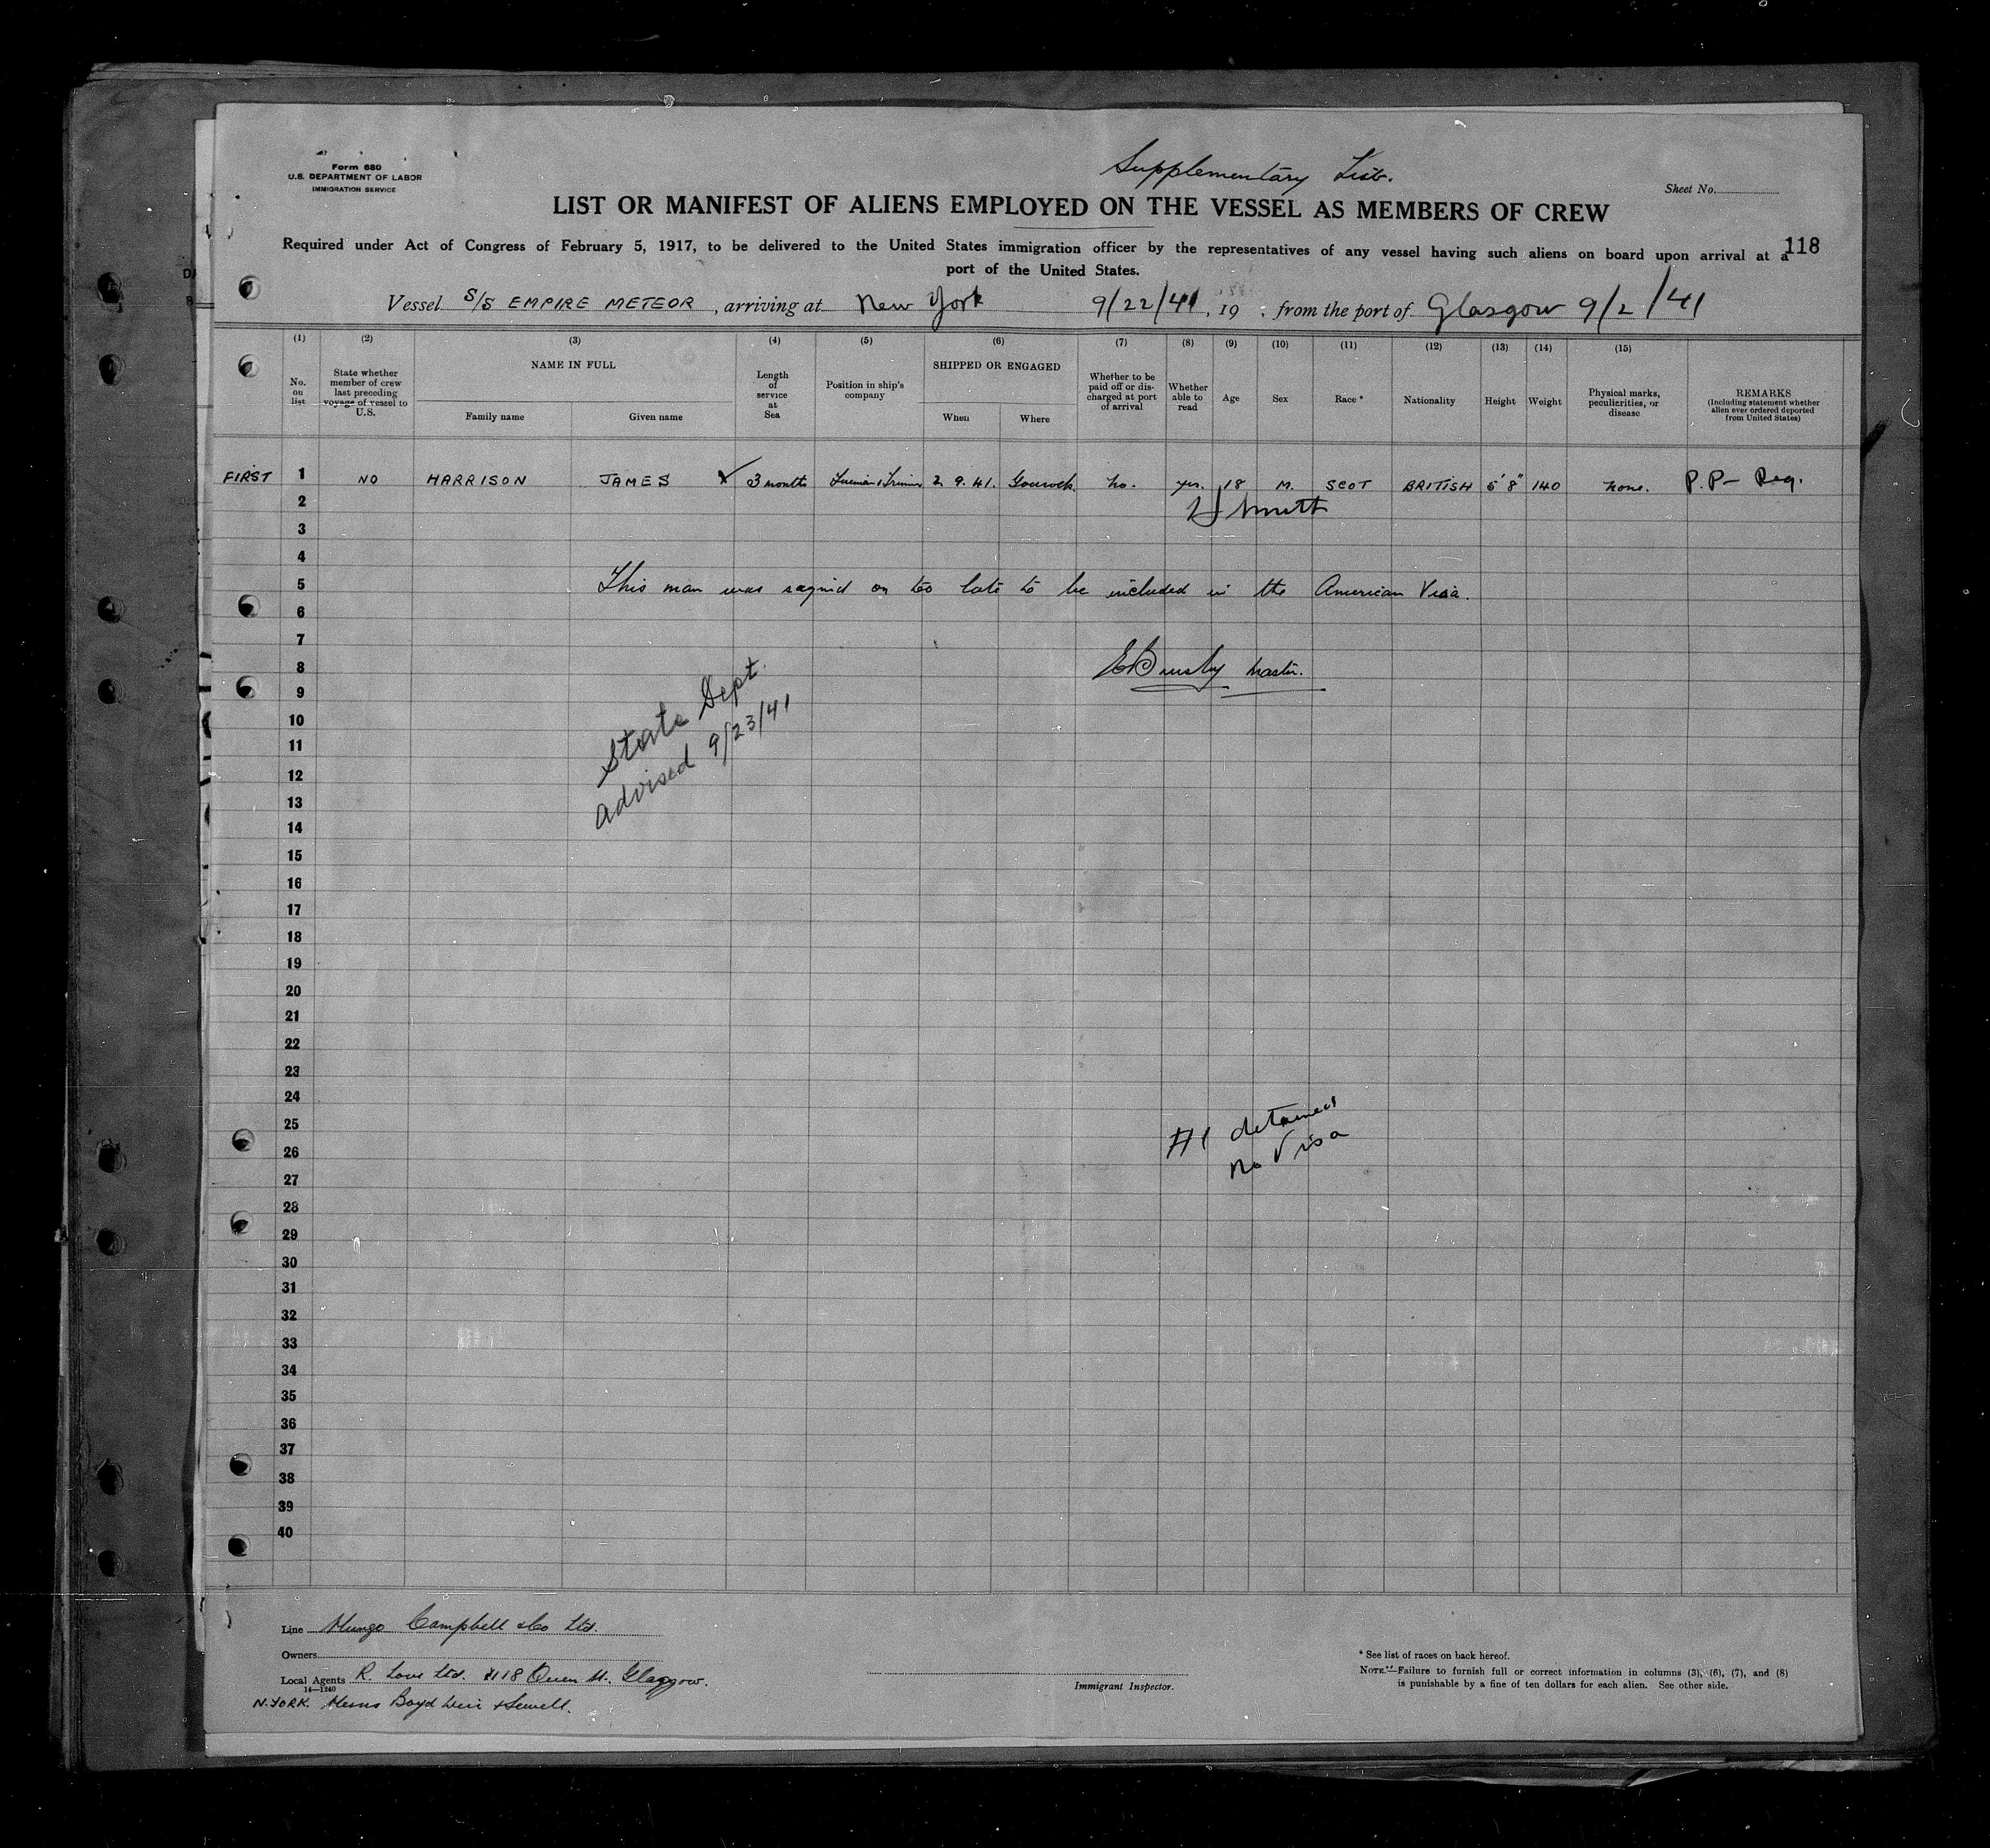 Form 680
U.S. DEPARTMENT OF LABOR
IMMIGRATION SERVICE
Supplementary List.
Sheet No.
LIST OR MANIFEST OF ALIENS EMPLOYED ON THE VESSEL AS MEMBERS OF CREW
118
Required under Act of Congress of February 5, 1917, to be delivered to the United States immigration officer by the representatives of any vessel having such aliens on board upon arrival at a
port of the United States.
Vessel S/S EMPIRE METEOR, arriving at New York 9/22/41, 19 ; from the port of Glasgow 9/2/41
(1) (2) (3) (4) (5) (6) (7) (8) (9) (10) (11) (12) (13) (14) (15)
No. on list
State whether member of crew last preceding voyage of vessel to U.S.
NAME IN FULL
Family name
Given name
Length of service at Sea
Position in ship's company
SHIPPED OR ENGAGED
When
Where
Whether to be paid off or discharged at port of arrival
Whether able to read
Age
Sex
Race *
Nationality
Height
Weight
Physical marks, peculiarities, or disease
REMARKS
(Including statement whether alien ever ordered deported from United States)
FIRST 1 NO HARRISON JAMES 3 months Fireman & Trimmer 2. 9. 41. Gourock. no. yes. 18 M. SCOT BRITISH 5' 8" 140 none. P.P- Reg.
2
3
4
5 This man was signed on too late to be included in the American Visa.
6
7
8 Master.
9
State Dept
advised 9/23/41
10
11
12
13
14
15
16
17
18
19
20
21
22
23
24
25
#1 detained
no Visa
26
27
28
29
30
31
32
33
34
35
36
37
38
39
40
Line Mungo Campbell & Co Ltd.
Owners
Local Agents R. Love Ltd. 118 Queen St. Glasgow.
14—1240
N. YORK. Messrs Boyd Weir & Sewell.
Immigrant Inspector.
* See list of races on back hereof.
NOTE.—Failure to furnish full or correct information in columns (3), (6), (7), and (8)
is punishable by a fine of ten dollars for each alien. See other side.